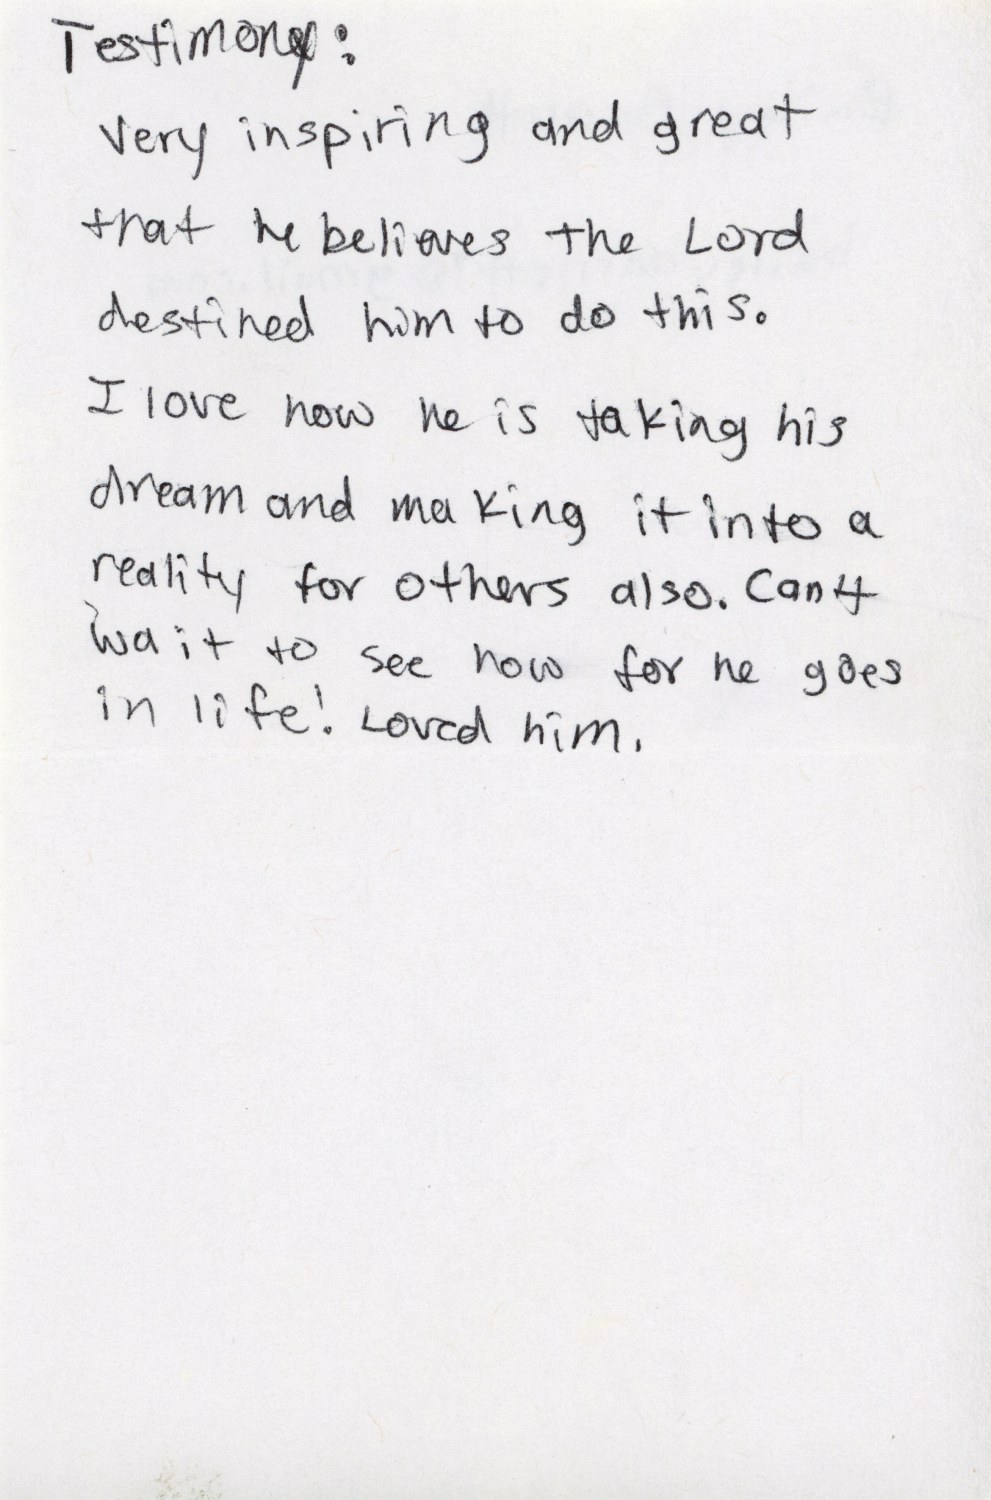 Testimony:
Very inspiring and great
that he believes the Lord
destined him to do this.
I love how he is taking his
dream and making it into a
reality for others also. Can't
wait to see how for he goes
in life! Loved him.